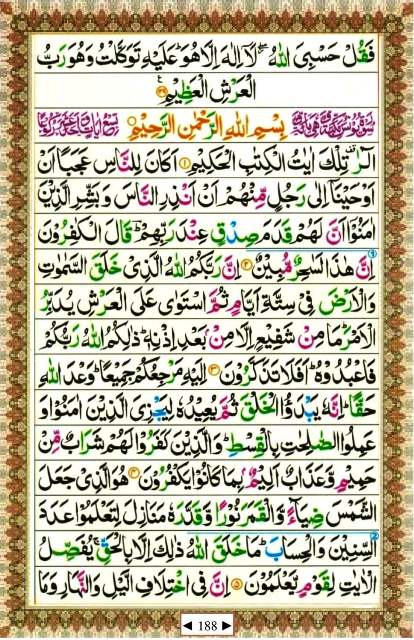 فَقُلْ حَسْبِيَ اللّٰهُ ۖ لَاۤ اِلٰهَ اِلَّا هُوَ ؕ عَلَيْهِ تَوَكَّلْتُ وَهُوَ رَبُّ
الْعَرْشِ الْعَظِيْمِ
بِسْمِ اللّٰهِ الرَّحْمٰنِ الرَّحِيْمِ
الٓرٰ ۫ تِلْكَ اٰيٰتُ الْكِتٰبِ الْحَكِيْمِ ۱ اَكَانَ لِلنَّاسِ عَجَبًا اَنْ
اَوْحَيْنَاۤ اِلٰى رَجُلٍ مِّنْهُمْ اَنْ اَنْذِرِ النَّاسَ وَبَشِّرِ الَّذِيْنَ
اٰمَنُوْۤا اَنَّ لَهُمْ قَدَمَ صِدْقٍ عِنْدَ رَبِّهِمْ ؕ قَالَ الْكٰفِرُوْنَ
اِنَّ هٰذَا لَسٰحِرٌ مُّبِيْنٌ ۲ اِنَّ رَبَّكُمُ اللّٰهُ الَّذِيْ خَلَقَ السَّمٰوٰتِ
وَالْاَرْضَ فِيْ سِتَّةِ اَيَّامٍ ثُمَّ اسْتَوٰى عَلَى الْعَرْشِ يُدَبِّرُ
الْاَمْرَ ؕ مَا مِنْ شَفِيْعٍ اِلَّا مِنْۢ بَعْدِ اِذْنِهٖ ؕ ذٰلِكُمُ اللّٰهُ رَبُّكُمْ
فَاعْبُدُوْهُ ؕ اَفَلَا تَذَكَّرُوْنَ ۳ اِلَيْهِ مَرْجِعُكُمْ جَمِيْعًا ؕ وَعْدَ اللّٰهِ
حَقًّا ؕ اِنَّهٗ يَبْدَؤُا الْخَلْقَ ثُمَّ يُعِيْدُهٗ لِيَجْزِيَ الَّذِيْنَ اٰمَنُوْا وَ
عَمِلُوا الصّٰلِحٰتِ بِالْقِسْطِ ؕ وَالَّذِيْنَ كَفَرُوْا لَهُمْ شَرَابٌ مِّنْ
حَمِيْمٍ وَّعَذَابٌ اَلِيْمٌۢ بِمَا كَانُوْا يَكْفُرُوْنَ ۴ هُوَ الَّذِيْ جَعَلَ
الشَّمْسَ ضِيَآءً وَّالْقَمَرَ نُوْرًا وَّقَدَّرَهٗ مَنَازِلَ لِتَعْلَمُوْا عَدَدَ
السِّنِيْنَ وَالْحِسَابَ ؕ مَا خَلَقَ اللّٰهُ ذٰلِكَ اِلَّا بِالْحَقِّ ۚ يُفَصِّلُ
الْاٰيٰتِ لِقَوْمٍ يَّعْلَمُوْنَ ۵ اِنَّ فِي اخْتِلَافِ الَّيْلِ وَالنَّهَارِ وَمَا
◄ 188 ►